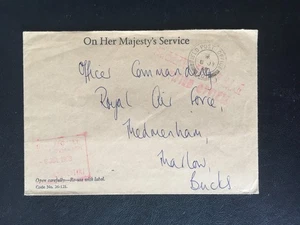 On Her Majesty's Service
Officer Commanding,
Royal Air Force,
Medmenham,
Marlow,
Bucks
Open carefully.
Code No.